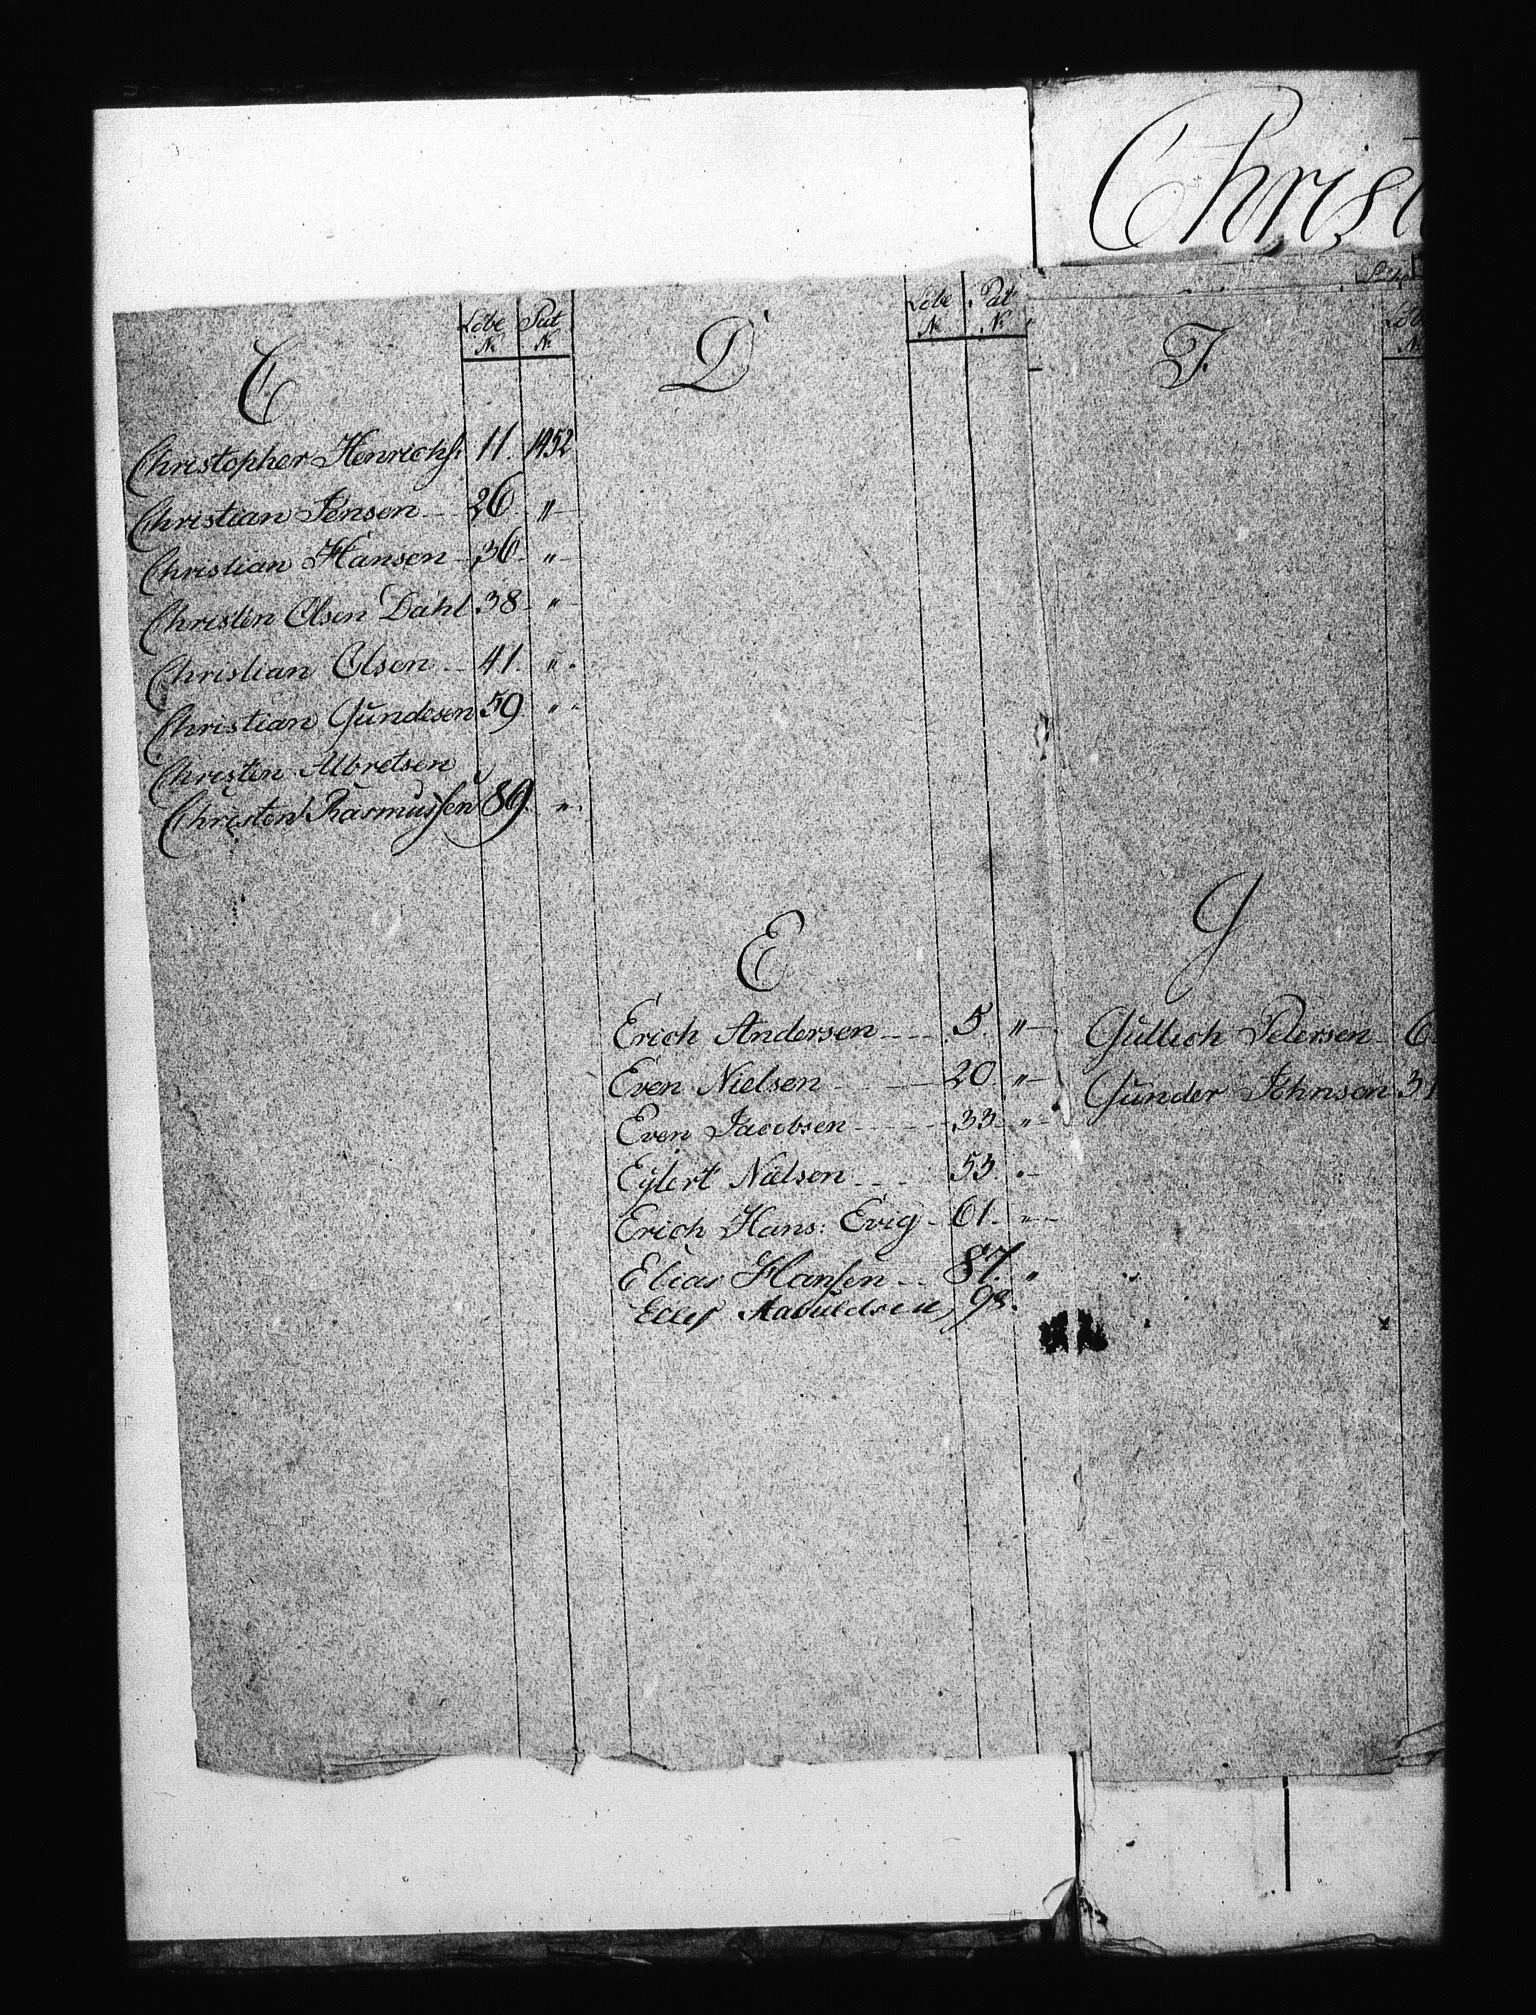 C
Löbe No Pat No
Christopher Henrichs: 11. 1452
Christian Jensen 26 "
Christian Hansen 36 "
Christen Olsen Dahl 38 "
Christian Olsen 41. "
Christian Gundesen 59 "
Christen Albretsen
Christen Rasmussen 89. "
D
Löbe No Pat No
E
Erich Andersen 5. "
Even Nielsen 20 "
Even Jacobsen 33 "
Eylert Nielsen 53. "
Erich Hans: Evig 61. "
Elias Hansen 87. "
Ellef 98.
Christ
F.
G
Gullich Petersen 6
Gunder Johnsen